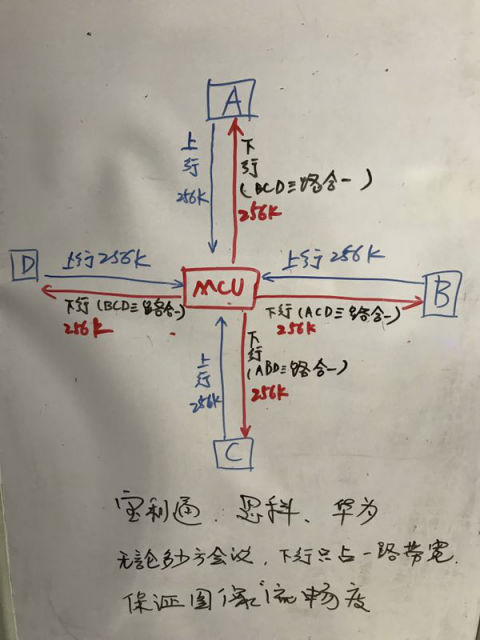 A
上行
256K
下行
(BCD三路合一)
256K
D
上行256K
上行256K
MCU
B
下行(BCD三路合一)
256K
下行(ACD三路合一)
256K
上行
256K
下行
(ABD三路合一)
256K
C
宝利通、思科、华为
无论多少方会议,下行只占一路带宽.
保证图像流畅度